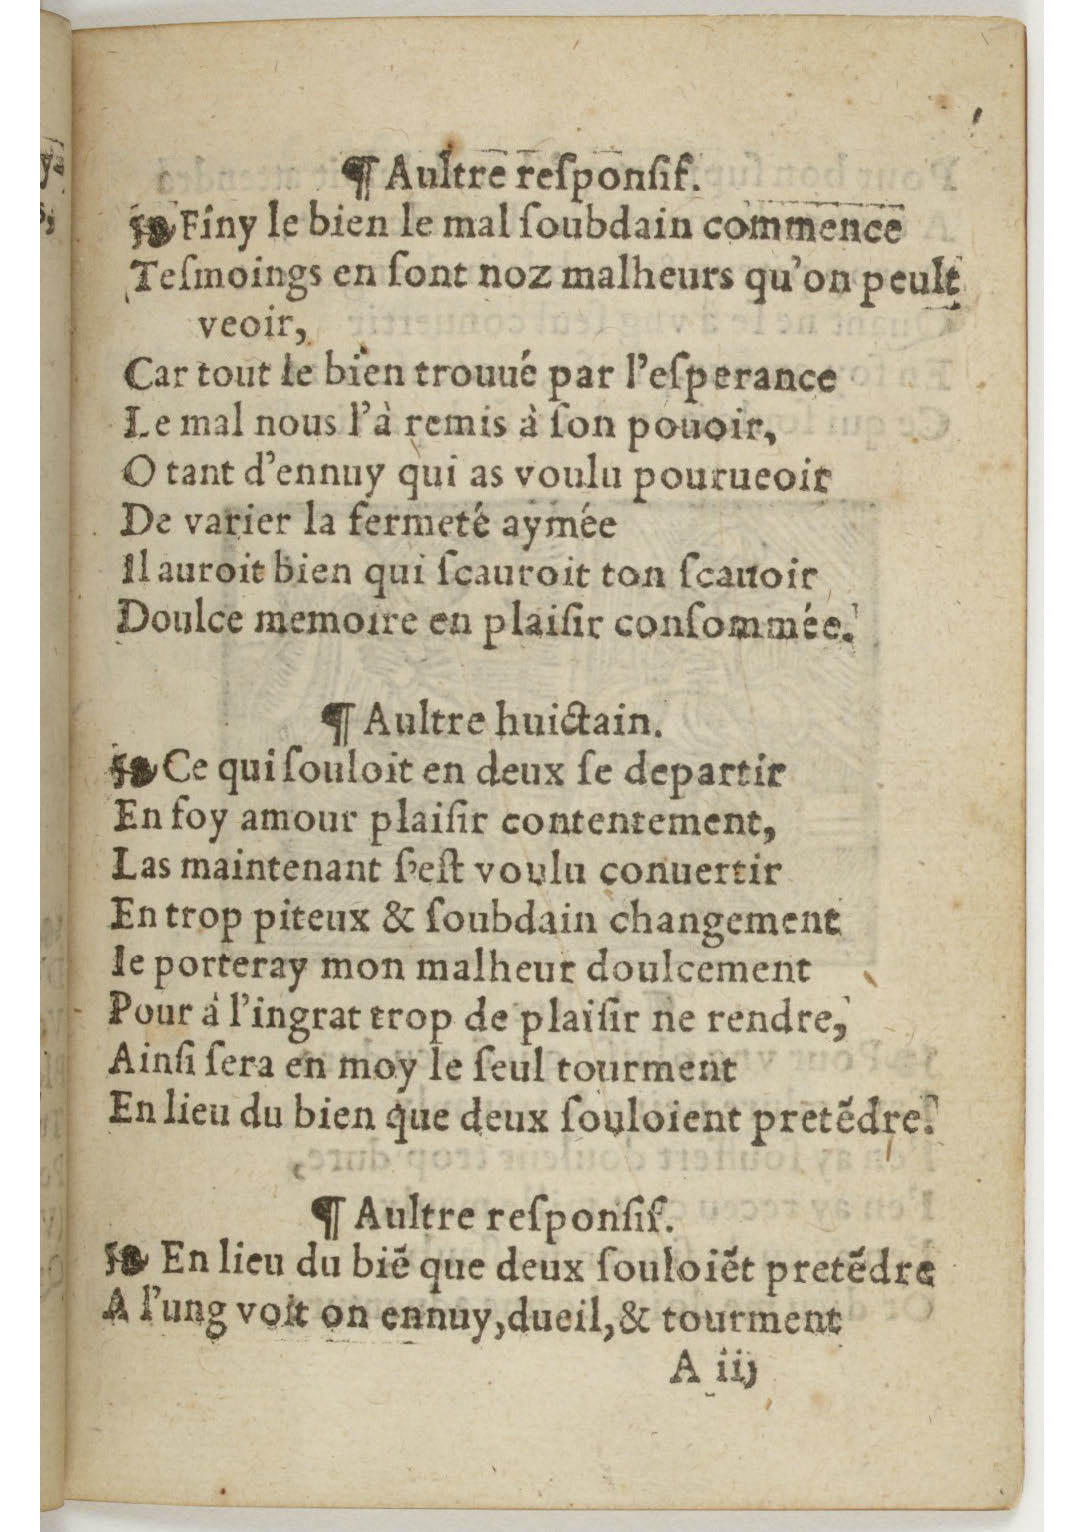 ¶ Aultre reſponſif.
❧ Finy le bien le mal ſoubdain commence
Teſmoings en ſont noz malheurs qu'on peult
veoir,
Car tout le bien trouué par l'eſperance
Le mal nous l'à remis à ſon pouoir,
O tant d'ennuy qui as voulu pourueoir
De varier la fermeté aymée
Il auroit bien qui ſcauroit ton ſcauoir
Doulce memoire en plaiſir conſommée.
¶ Aultre huictain.
❧ Ce qui ſouloit en deux ſe departir
En foy amour plaiſir contentement,
Las maintenant ſ'eſt voulu conuertir
En trop piteux & ſoubdain changement
Ie porteray mon malheur doulcement
Pour à l'ingrat trop de plaiſir ne rendre,
Ainſi ſera en moy le ſeul tourment
En lieu du bien que deux ſouloient pretẽdre.
¶ Aultre reſponſif.
❧ En lieu du biẽ que deux ſouloiẽt pretẽdre
A l'ung voit on ennuy, dueil, & tourment
A iij